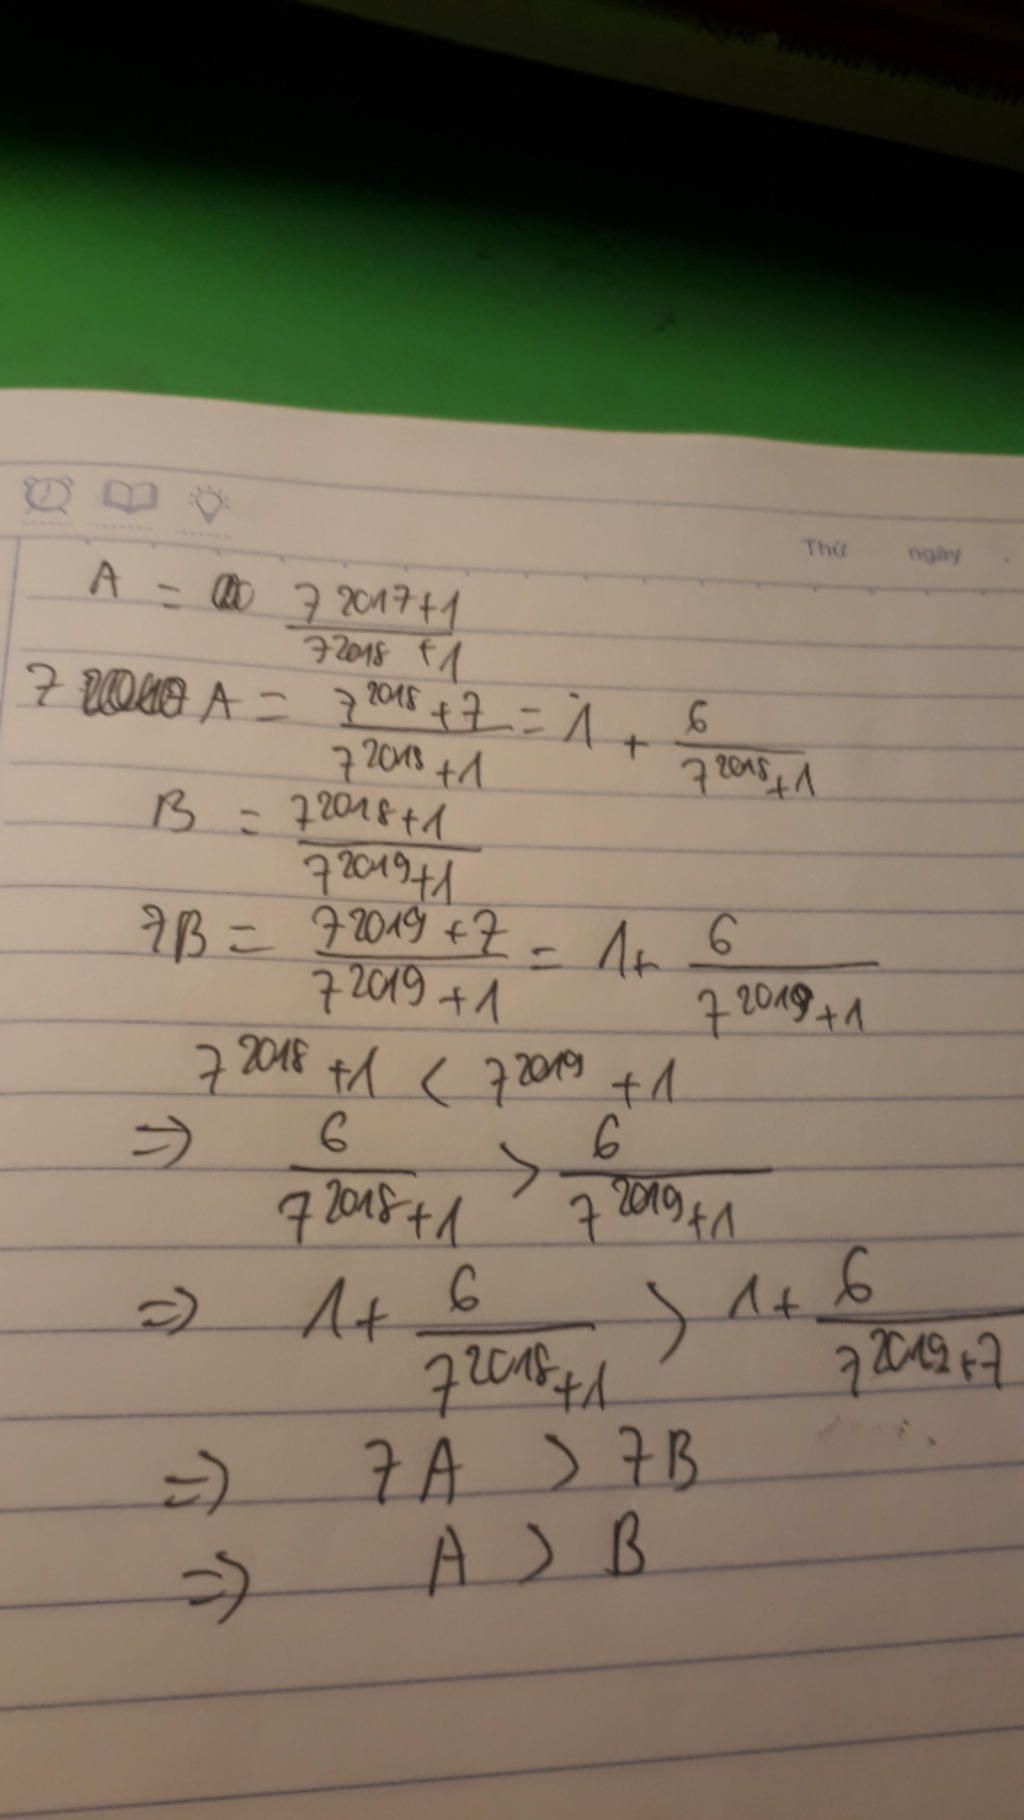 Thứ ngày
A = 7^2017+1 / 7^2018 +1
7 A = 7^2018 +7 / 7^2018 +1 = 1 + 6 / 7^2018 +1
B = 7^2018+1 / 7^2019+1
7B = 7^2019 +7 / 7^2019 +1 = 1+ 6 / 7^2019 +1
7^2018 +1 < 7^2019 +1
=> 6 / 7^2018 +1 > 6 / 7^2019 +1
=> 1+ 6 / 7^2018 +1 > 1+ 6 / 7^2019 +7
=> 7A > 7B
=> A > B